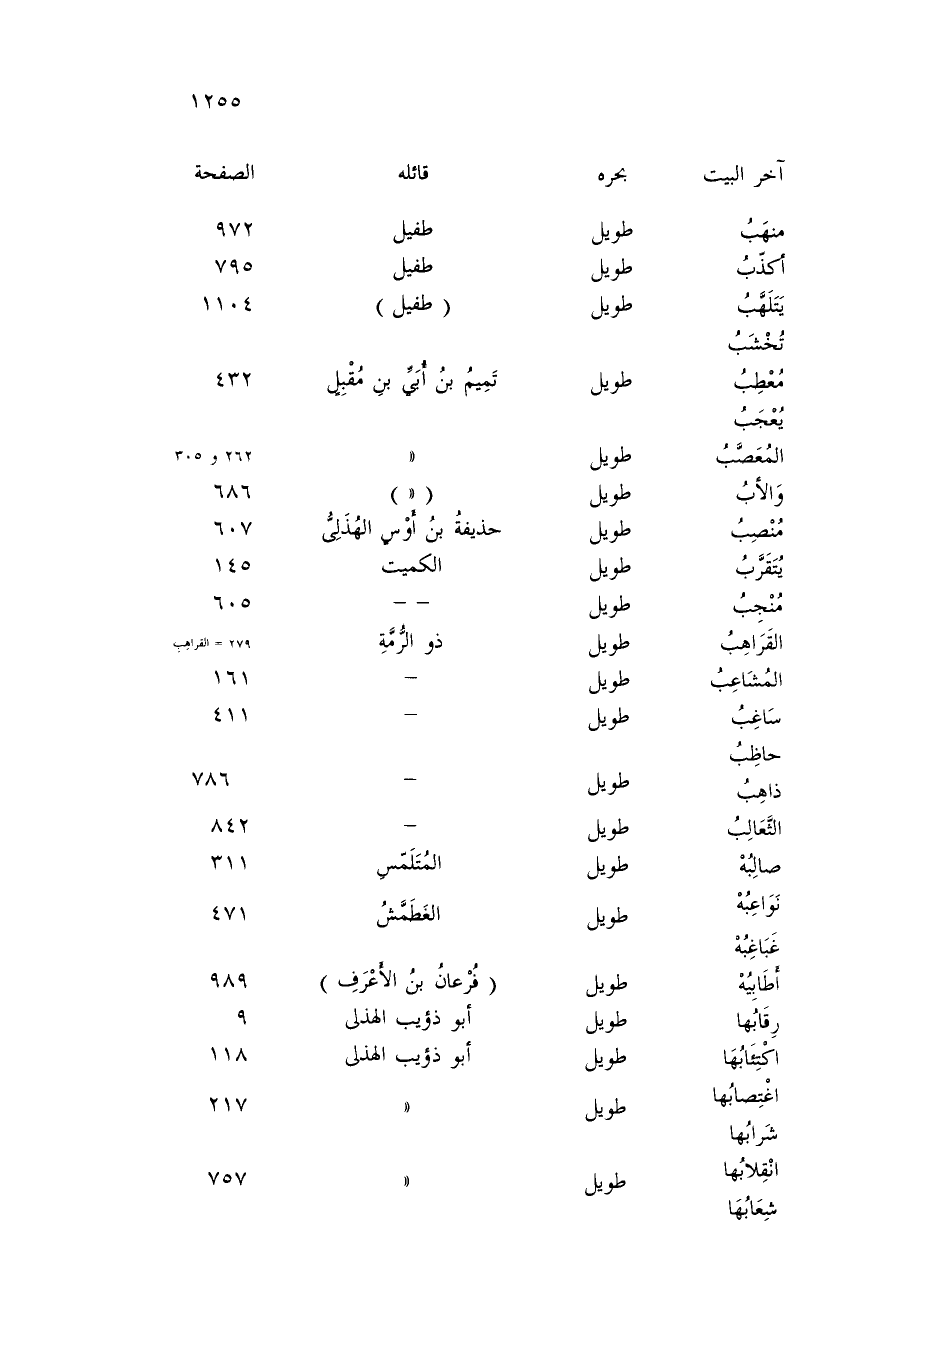 ١٢٥٥
آخر البيت بحره قائله الصفحة
منهَبُ طويل طفيل ٩٧٢
أكذّبُ طويل طفيل ٧٩٥
يَتَلَهَّبُ طويل ( طفيل ) ١١٠٤
تُخْشَبُ
مُعْطِبُ طويل تَمِيمُ بنُ أُبَيِّ بنِ مُقْبِلٍ ٤٣٢
يُعْجَبُ
المُعَصَّبُ طويل » ٢٦٢ و ٣٠٥
وَالأبُ طويل ( » ) ٦٨٦
مُنْصِبُ طويل حذيفةُ بنُ أَوْسٍ الهُذَلِىُّ ٦٠٧
يُتَقَرَّبُ طويل الكميت ١٤٥
مُنْجِبُ طويل – – ٦٠٥
القَرَاهِبُ طويل ذو الرُّمَّةِ ٢٧٩ = القراهِب
المُشَاعِبُ طويل – ١٦١
سَاغِبُ طويل – ٤١١
حاظِبُ
ذاهِبُ طويل – ٧٨٦
الثَّعَالِبُ طويل – ٨٤٢
صالِبُهْ طويل المُتَلَمّسِ ٣١١
نَوَاعِبُهْ طويل الغَطَمَّشُ ٤٧١
غَبَاغِبُهْ
أَطَايِبُهْ طويل ( فُرْعانُ بنُ الأَعْرَفِ ) ٩٨٩
رِقَابُها طويل أبو ذؤيب الهذلى ٩
اكْتِئَابُهَا طويل أبو ذؤيب الهذلى ١١٨
اغْتِصابُها طويل » ٢١٧
شَرابُها
انْقِلابُها طويل » ٧٥٧
شِعَابُهَا